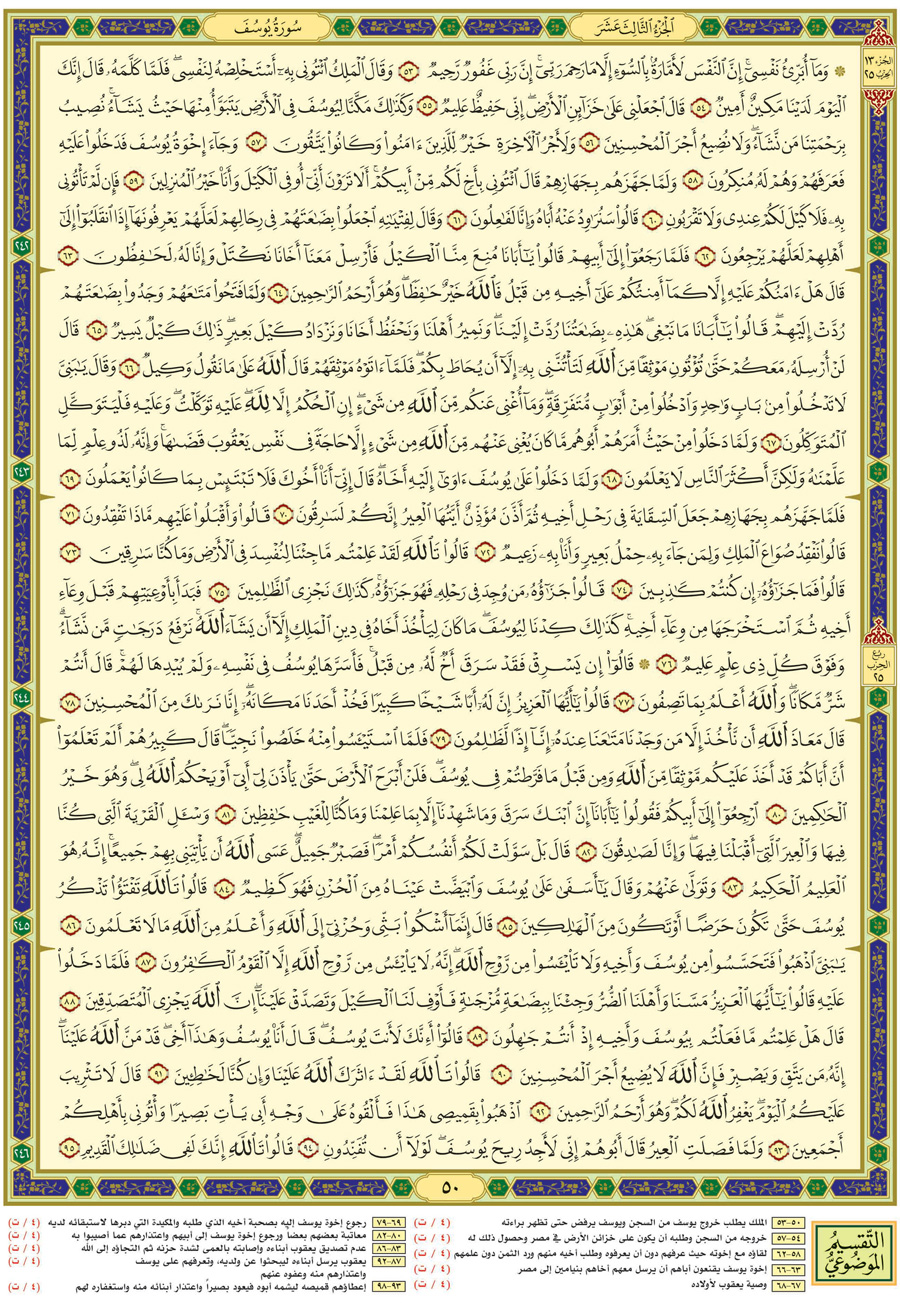 الجزء الثالث عشر
سورة يوسف
الجزء ١٣
الحزب ٢٥
۞ وَمَآ أُبَرِّئُ نَفْسِىٓ ۚ إِنَّ ٱلنَّفْسَ لَأَمَّارَةٌۢ بِٱلسُّوٓءِ إِلَّا مَا رَحِمَ رَبِّىٓ ۚ إِنَّ رَبِّى غَفُورٌ رَّحِيمٌ ٥٣ وَقَالَ ٱلْمَلِكُ ٱئْتُونِى بِهِۦٓ أَسْتَخْلِصْهُ لِنَفْسِى ۖ فَلَمَّا كَلَّمَهُۥ قَالَ إِنَّكَ
ٱلْيَوْمَ لَدَيْنَا مَكِينٌ أَمِينٌ ٥٤ قَالَ ٱجْعَلْنِى عَلَىٰ خَزَآئِنِ ٱلْأَرْضِ ۖ إِنِّى حَفِيظٌ عَلِيمٌ ٥٥ وَكَذَٰلِكَ مَكَّنَّا لِيُوسُفَ فِى ٱلْأَرْضِ يَتَبَوَّأُ مِنْهَا حَيْثُ يَشَآءُ ۚ نُصِيبُ
بِرَحْمَتِنَا مَن نَّشَآءُ ۖ وَلَا نُضِيعُ أَجْرَ ٱلْمُحْسِنِينَ ٥٦ وَلَأَجْرُ ٱلْءَاخِرَةِ خَيْرٌ لِّلَّذِينَ ءَامَنُوا۟ وَكَانُوا۟ يَتَّقُونَ ٥٧ وَجَآءَ إِخْوَةُ يُوسُفَ فَدَخَلُوا۟ عَلَيْهِ
فَعَرَفَهُمْ وَهُمْ لَهُۥ مُنكِرُونَ ٥٨ وَلَمَّا جَهَّزَهُم بِجَهَازِهِمْ قَالَ ٱئْتُونِى بِأَخٍ لَّكُم مِّنْ أَبِيكُمْ ۚ أَلَا تَرَوْنَ أَنِّىٓ أُوفِى ٱلْكَيْلَ وَأَنَا۠ خَيْرُ ٱلْمُنزِلِينَ ٥٩ فَإِن لَّمْ تَأْتُونِى
بِهِۦ فَلَا كَيْلَ لَكُمْ عِندِى وَلَا تَقْرَبُونِ ٦٠ قَالُوا۟ سَنُرَٰوِدُ عَنْهُ أَبَاهُ وَإِنَّا لَفَٰعِلُونَ ٦١ وَقَالَ لِفِتْيَٰنِهِ ٱجْعَلُوا۟ بِضَٰعَتَهُمْ فِى رِحَالِهِمْ لَعَلَّهُمْ يَعْرِفُونَهَآ إِذَا ٱنقَلَبُوٓا۟ إِلَىٰٓ
أَهْلِهِمْ لَعَلَّهُمْ يَرْجِعُونَ ٦٢ فَلَمَّا رَجَعُوٓا۟ إِلَىٰٓ أَبِيهِمْ قَالُوا۟ يَٰٓأَبَانَا مُنِعَ مِنَّا ٱلْكَيْلُ فَأَرْسِلْ مَعَنَآ أَخَانَا نَكْتَلْ وَإِنَّا لَهُۥ لَحَٰفِظُونَ ٦٣
قَالَ هَلْ ءَامَنُكُمْ عَلَيْهِ إِلَّا كَمَآ أَمِنتُكُمْ عَلَىٰٓ أَخِيهِ مِن قَبْلُ ۖ فَٱللَّهُ خَيْرٌ حَٰفِظًا ۖ وَهُوَ أَرْحَمُ ٱلرَّٰحِمِينَ ٦٤ وَلَمَّا فَتَحُوا۟ مَتَٰعَهُمْ وَجَدُوا۟ بِضَٰعَتَهُمْ
رُدَّتْ إِلَيْهِمْ ۖ قَالُوا۟ يَٰٓأَبَانَا مَا نَبْغِى ۖ هَٰذِهِۦ بِضَٰعَتُنَا رُدَّتْ إِلَيْنَا ۖ وَنَمِيرُ أَهْلَنَا وَنَحْفَظُ أَخَانَا وَنَزْدَادُ كَيْلَ بَعِيرٍ ۖ ذَٰلِكَ كَيْلٌ يَسِيرٌ ٦٥ قَالَ
لَنْ أُرْسِلَهُۥ مَعَكُمْ حَتَّىٰ تُؤْتُونِ مَوْثِقًا مِّنَ ٱللَّهِ لَتَأْتُنَّنِى بِهِۦٓ إِلَّآ أَن يُحَاطَ بِكُمْ ۖ فَلَمَّآ ءَاتَوْهُ مَوْثِقَهُمْ قَالَ ٱللَّهُ عَلَىٰ مَا نَقُولُ وَكِيلٌ ٦٦ وَقَالَ يَٰبَنِىَّ
لَا تَدْخُلُوا۟ مِنۢ بَابٍ وَٰحِدٍ وَٱدْخُلُوا۟ مِنْ أَبْوَٰبٍ مُّتَفَرِّقَةٍ ۖ وَمَآ أُغْنِى عَنكُم مِّنَ ٱللَّهِ مِن شَىْءٍ ۖ إِنِ ٱلْحُكْمُ إِلَّا لِلَّهِ ۖ عَلَيْهِ تَوَكَّلْتُ ۖ وَعَلَيْهِ فَلْيَتَوَكَّلِ
ٱلْمُتَوَكِّلُونَ ٦٧ وَلَمَّا دَخَلُوا۟ مِنْ حَيْثُ أَمَرَهُمْ أَبُوهُم مَّا كَانَ يُغْنِى عَنْهُم مِّنَ ٱللَّهِ مِن شَىْءٍ إِلَّا حَاجَةً فِى نَفْسِ يَعْقُوبَ قَضَىٰهَا ۚ وَإِنَّهُۥ لَذُو عِلْمٍ لِّمَا
عَلَّمْنَٰهُ وَلَٰكِنَّ أَكْثَرَ ٱلنَّاسِ لَا يَعْلَمُونَ ٦٨ وَلَمَّا دَخَلُوا۟ عَلَىٰ يُوسُفَ ءَاوَىٰٓ إِلَيْهِ أَخَاهُ ۖ قَالَ إِنِّىٓ أَنَا۠ أَخُوكَ فَلَا تَبْتَئِسْ بِمَا كَانُوا۟ يَعْمَلُونَ ٦٩
فَلَمَّا جَهَّزَهُم بِجَهَازِهِمْ جَعَلَ ٱلسِّقَايَةَ فِى رَحْلِ أَخِيهِ ثُمَّ أَذَّنَ مُؤَذِّنٌ أَيَّتُهَا ٱلْعِيرُ إِنَّكُمْ لَسَٰرِقُونَ ٧٠ قَالُوا۟ وَأَقْبَلُوا۟ عَلَيْهِم مَّاذَا تَفْقِدُونَ ٧١
قَالُوا۟ نَفْقِدُ صُوَاعَ ٱلْمَلِكِ وَلِمَن جَآءَ بِهِۦ حِمْلُ بَعِيرٍ وَأَنَا۠ بِهِۦ زَعِيمٌ ٧٢ قَالُوا۟ تَٱللَّهِ لَقَدْ عَلِمْتُم مَّا جِئْنَا لِنُفْسِدَ فِى ٱلْأَرْضِ وَمَا كُنَّا سَٰرِقِينَ ٧٣
قَالُوا۟ فَمَا جَزَٰٓؤُهُۥٓ إِن كُنتُمْ كَٰذِبِينَ ٧٤ قَالُوا۟ جَزَٰٓؤُهُۥ مَن وُجِدَ فِى رَحْلِهِۦ فَهُوَ جَزَٰٓؤُهُۥ ۚ كَذَٰلِكَ نَجْزِى ٱلظَّٰلِمِينَ ٧٥ فَبَدَأَ بِأَوْعِيَتِهِمْ قَبْلَ وِعَآءِ
أَخِيهِ ثُمَّ ٱسْتَخْرَجَهَا مِن وِعَآءِ أَخِيهِ ۚ كَذَٰلِكَ كِدْنَا لِيُوسُفَ ۖ مَا كَانَ لِيَأْخُذَ أَخَاهُ فِى دِينِ ٱلْمَلِكِ إِلَّآ أَن يَشَآءَ ٱللَّهُ ۚ نَرْفَعُ دَرَجَٰتٍ مَّن نَّشَآءُ ۗ
وَفَوْقَ كُلِّ ذِى عِلْمٍ عَلِيمٌ ٧٦ ۞ قَالُوٓا۟ إِن يَسْرِقْ فَقَدْ سَرَقَ أَخٌ لَّهُۥ مِن قَبْلُ ۚ فَأَسَرَّهَا يُوسُفُ فِى نَفْسِهِۦ وَلَمْ يُبْدِهَا لَهُمْ ۚ قَالَ أَنتُمْ
شَرٌّ مَّكَانًا ۖ وَٱللَّهُ أَعْلَمُ بِمَا تَصِفُونَ ٧٧ قَالُوا۟ يَٰٓأَيُّهَا ٱلْعَزِيزُ إِنَّ لَهُۥٓ أَبًا شَيْخًا كَبِيرًا فَخُذْ أَحَدَنَا مَكَانَهُۥٓ ۖ إِنَّا نَرَىٰكَ مِنَ ٱلْمُحْسِنِينَ ٧٨
قَالَ مَعَاذَ ٱللَّهِ أَن نَّأْخُذَ إِلَّا مَن وَجَدْنَا مَتَٰعَنَا عِندَهُۥٓ إِنَّآ إِذًا لَّظَٰلِمُونَ ٧٩ فَلَمَّا ٱسْتَيْـَٔسُوا۟ مِنْهُ خَلَصُوا۟ نَجِيًّا ۖ قَالَ كَبِيرُهُمْ أَلَمْ تَعْلَمُوٓا۟
أَنَّ أَبَاكُمْ قَدْ أَخَذَ عَلَيْكُم مَّوْثِقًا مِّنَ ٱللَّهِ وَمِن قَبْلُ مَا فَرَّطتُمْ فِى يُوسُفَ ۖ فَلَنْ أَبْرَحَ ٱلْأَرْضَ حَتَّىٰ يَأْذَنَ لِىٓ أَبِىٓ أَوْ يَحْكُمَ ٱللَّهُ لِى ۖ وَهُوَ خَيْرُ
ٱلْحَٰكِمِينَ ٨٠ ٱرْجِعُوٓا۟ إِلَىٰٓ أَبِيكُمْ فَقُولُوا۟ يَٰٓأَبَانَآ إِنَّ ٱبْنَكَ سَرَقَ وَمَا شَهِدْنَآ إِلَّا بِمَا عَلِمْنَا وَمَا كُنَّا لِلْغَيْبِ حَٰفِظِينَ ٨١ وَسْـَٔلِ ٱلْقَرْيَةَ ٱلَّتِى كُنَّا
فِيهَا وَٱلْعِيرَ ٱلَّتِىٓ أَقْبَلْنَا فِيهَا ۖ وَإِنَّا لَصَٰدِقُونَ ٨٢ قَالَ بَلْ سَوَّلَتْ لَكُمْ أَنفُسُكُمْ أَمْرًا ۖ فَصَبْرٌ جَمِيلٌ ۖ عَسَى ٱللَّهُ أَن يَأْتِيَنِى بِهِمْ جَمِيعًا ۚ إِنَّهُۥ هُوَ
ٱلْعَلِيمُ ٱلْحَكِيمُ ٨٣ وَتَوَلَّىٰ عَنْهُمْ وَقَالَ يَٰٓأَسَفَىٰ عَلَىٰ يُوسُفَ وَٱبْيَضَّتْ عَيْنَاهُ مِنَ ٱلْحُزْنِ فَهُوَ كَظِيمٌ ٨٤ قَالُوا۟ تَٱللَّهِ تَفْتَؤُا۟ تَذْكُرُ
يُوسُفَ حَتَّىٰ تَكُونَ حَرَضًا أَوْ تَكُونَ مِنَ ٱلْهَٰلِكِينَ ٨٥ قَالَ إِنَّمَآ أَشْكُوا۟ بَثِّى وَحُزْنِىٓ إِلَى ٱللَّهِ وَأَعْلَمُ مِنَ ٱللَّهِ مَا لَا تَعْلَمُونَ ٨٦
يَٰبَنِىَّ ٱذْهَبُوا۟ فَتَحَسَّسُوا۟ مِن يُوسُفَ وَأَخِيهِ وَلَا تَا۟يْـَٔسُوا۟ مِن رَّوْحِ ٱللَّهِ ۖ إِنَّهُۥ لَا يَا۟يْـَٔسُ مِن رَّوْحِ ٱللَّهِ إِلَّا ٱلْقَوْمُ ٱلْكَٰفِرُونَ ٨٧ فَلَمَّا دَخَلُوا۟
عَلَيْهِ قَالُوا۟ يَٰٓأَيُّهَا ٱلْعَزِيزُ مَسَّنَا وَأَهْلَنَا ٱلضُّرُّ وَجِئْنَا بِبِضَٰعَةٍ مُّزْجَىٰةٍ فَأَوْفِ لَنَا ٱلْكَيْلَ وَتَصَدَّقْ عَلَيْنَآ ۖ إِنَّ ٱللَّهَ يَجْزِى ٱلْمُتَصَدِّقِينَ ٨٨
قَالَ هَلْ عَلِمْتُم مَّا فَعَلْتُم بِيُوسُفَ وَأَخِيهِ إِذْ أَنتُمْ جَٰهِلُونَ ٨٩ قَالُوٓا۟ أَءِنَّكَ لَأَنتَ يُوسُفُ ۖ قَالَ أَنَا۠ يُوسُفُ وَهَٰذَآ أَخِى ۖ قَدْ مَنَّ ٱللَّهُ عَلَيْنَآ ۖ
إِنَّهُۥ مَن يَتَّقِ وَيَصْبِرْ فَإِنَّ ٱللَّهَ لَا يُضِيعُ أَجْرَ ٱلْمُحْسِنِينَ ٩٠ قَالُوا۟ تَٱللَّهِ لَقَدْ ءَاثَرَكَ ٱللَّهُ عَلَيْنَا وَإِن كُنَّا لَخَٰطِـِٔينَ ٩١ قَالَ لَا تَثْرِيبَ
عَلَيْكُمُ ٱلْيَوْمَ ۖ يَغْفِرُ ٱللَّهُ لَكُمْ ۖ وَهُوَ أَرْحَمُ ٱلرَّٰحِمِينَ ٩٢ ٱذْهَبُوا۟ بِقَمِيصِى هَٰذَا فَأَلْقُوهُ عَلَىٰ وَجْهِ أَبِى يَأْتِ بَصِيرًا وَأْتُونِى بِأَهْلِكُمْ
أَجْمَعِينَ ٩٣ وَلَمَّا فَصَلَتِ ٱلْعِيرُ قَالَ أَبُوهُمْ إِنِّى لَأَجِدُ رِيحَ يُوسُفَ ۖ لَوْلَآ أَن تُفَنِّدُونِ ٩٤ قَالُوا۟ تَٱللَّهِ إِنَّكَ لَفِى ضَلَٰلِكَ ٱلْقَدِيمِ ٩٥
ربع الحزب ٢٥
٢٤٢
٢٤٣
٢٤٤
٢٤٥
٢٤٦
٥٠
التقسيم الموضوعي
٥٠-٥٣ الملك يطلب خروج يوسف من السجن ويوسف يرفض حتى تظهر براءته (٤ / ت)
٥٤-٥٧ خروجه من السجن وطلبه أن يكون على خزائن الأرض في مصر وحصول ذلك له (٤ / ت)
٥٨-٦٢ لقاؤه مع إخوته حيث عرفهم دون أن يعرفوه وطلب أخيه منهم ورد الثمن دون علمهم (٤ / ت)
٦٣-٦٦ إخوة يوسف يقنعون أباهم أن يرسل معهم أخاهم بنيامين إلى مصر (٤ / ت)
٦٧-٦٨ وصية يعقوب لأولاده (٤ / ت)
٦٩-٧٩ رجوع إخوة يوسف إليه بصحبة أخيه الذي طلبه والمكيدة التي دبرها لاستبقائه لديه (٤ / ت)
٨٠-٨٢ معاتبة بعضهم بعضا ورجوع إخوة يوسف إلى أبيهم واعتذارهم عما أصيبوا به (٤ / ت)
٨٣-٨٦ عدم تصديق يعقوب أبناءه وإصابته بالعمى لشدة حزنه ثم التجاؤه إلى الله (٤ / ت)
٨٧-٩٢ يعقوب يرسل أبناءه ليبحثوا عن ولديه، وتعرفهم على يوسف (٤ / ت)
واعتذارهم منه وعفوه عنهم
٩٣-٩٨ إعطاؤهم قميصه ليشمه أبوه فيعود بصيراً واعتذار أبنائه منه واستغفاره لهم (٤ / ت)